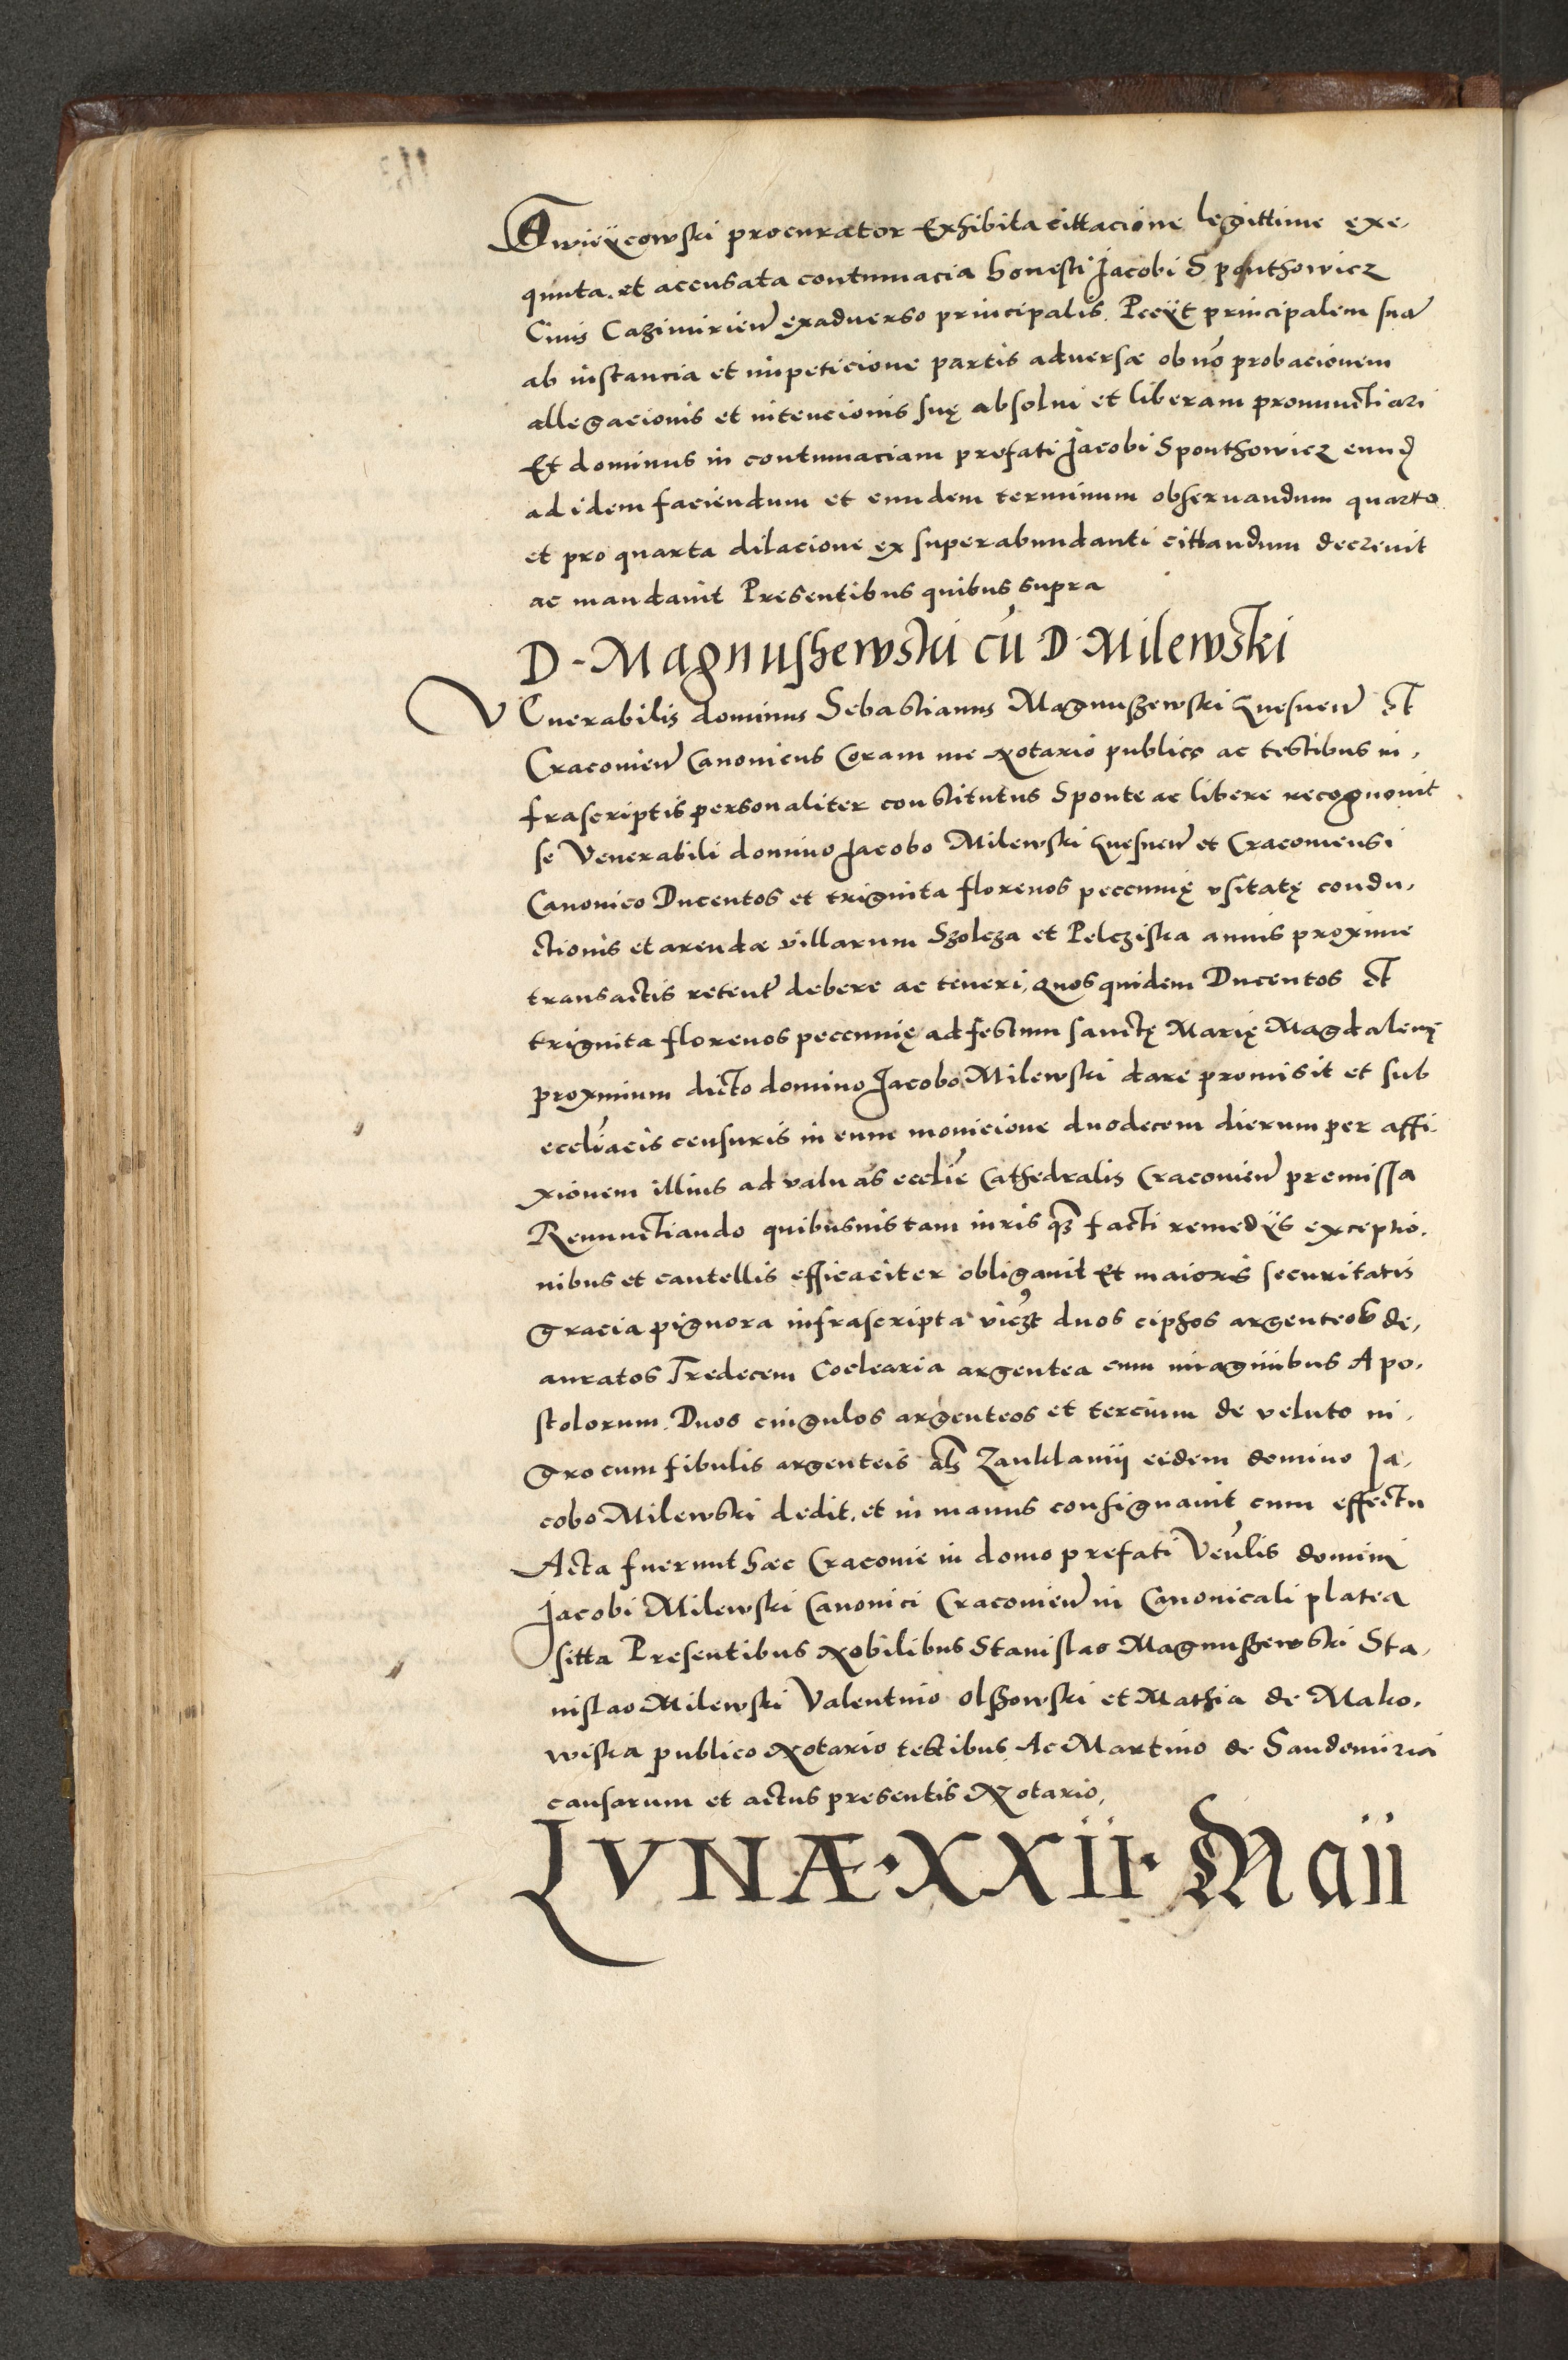 procurator Exhibita cittacione legittime exe,
quuta. et accusata contumacia honesti Jacobi Sponthowicz
Civis Cazimirien̄ exadverso principalis. Pecÿt principalem suā
ab instancia et impeticione partis adversæ ob nō probacionem
allegacionis et intencionis suę absolvi et liberam pronunctiari
Et dominus in contumaciam prefati Jacobi Sponthowicz eund̄
ad idem faciendum et eundem terminum observandum quarto
et pro quarta dilacione ex superabundanti cittandum decrevit
ac mandavit Presentibus quibus supra
D - Magnushewski cū D. Milewski
Venerabilis dominus Sebastianus Magnuszewski Gnesnen̄ et
Cracovien̄ Canonicus Coram me Notario publico ac testibus in,
frascriptis personaliter constitutus Sponte ac libere recognovit
se Venerabili domino Jacobo Milewski Gnesnen̄ et Cracoviensi
Canonico Ducentos et triginta florenos peccunię usitatę condu,
ctionis et arendæ villarum Szolcza et Pelcziska annis proxime
transactis retent̄ debere ac teneri, Quos quidem Ducentos et
triginta florenos peccunię ad festum sanctę Marię Magdalenę
proximum dicto domino Jacobo Milewski dare promisit et sub
eccl̄iacis censuris in eum monicione duodecem dierum per affi.
xionem illius ad valvas eccl̄ie Cathedralis Cracovien̄ premissa
Renunctiando quibusvis tam iuris qꝫ facti remedÿs exceptio.
nibus et cautellis efficaciter obligavit Et maioris securitatis
gracia pignora infrascripta viczt duos ciphos argenteos de,
auratos Tredecem Coclearia argentea cum imaginibus Apo.
stolorum. Duos cingulos argenteos et tercium de veluto ni,
gro cum fibulis argenteis al̄s Zanklamij eidem domino Ja,
cobo Milewski dedit. et in manus consignavit cum effectu
Acta fuerunt hæc Cracovie in domo prefati Ven̄lis domini
Jacobi Milewski Canonici Cracovien̄ in Canonicali platea
sitta Presentibus Nobilibus Stanislao Magnuszewski Sta,
nislao Milewski Valentino Olszowski et Mathia de Mako.
wiska publico Notario testibus. Ac Martino de Sandomiria
causarum et actus presentis Notario,
LVNÆ·XXII· Maii